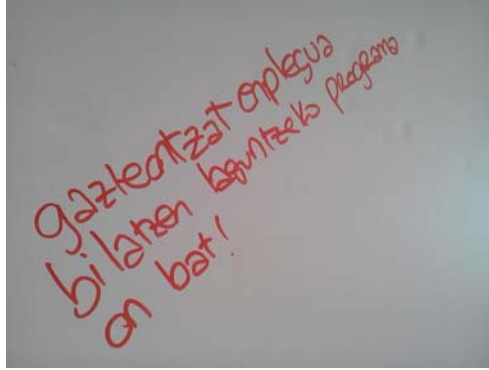 gazteontzat enplegua
bilatzen laguntzeko programa
on bat!